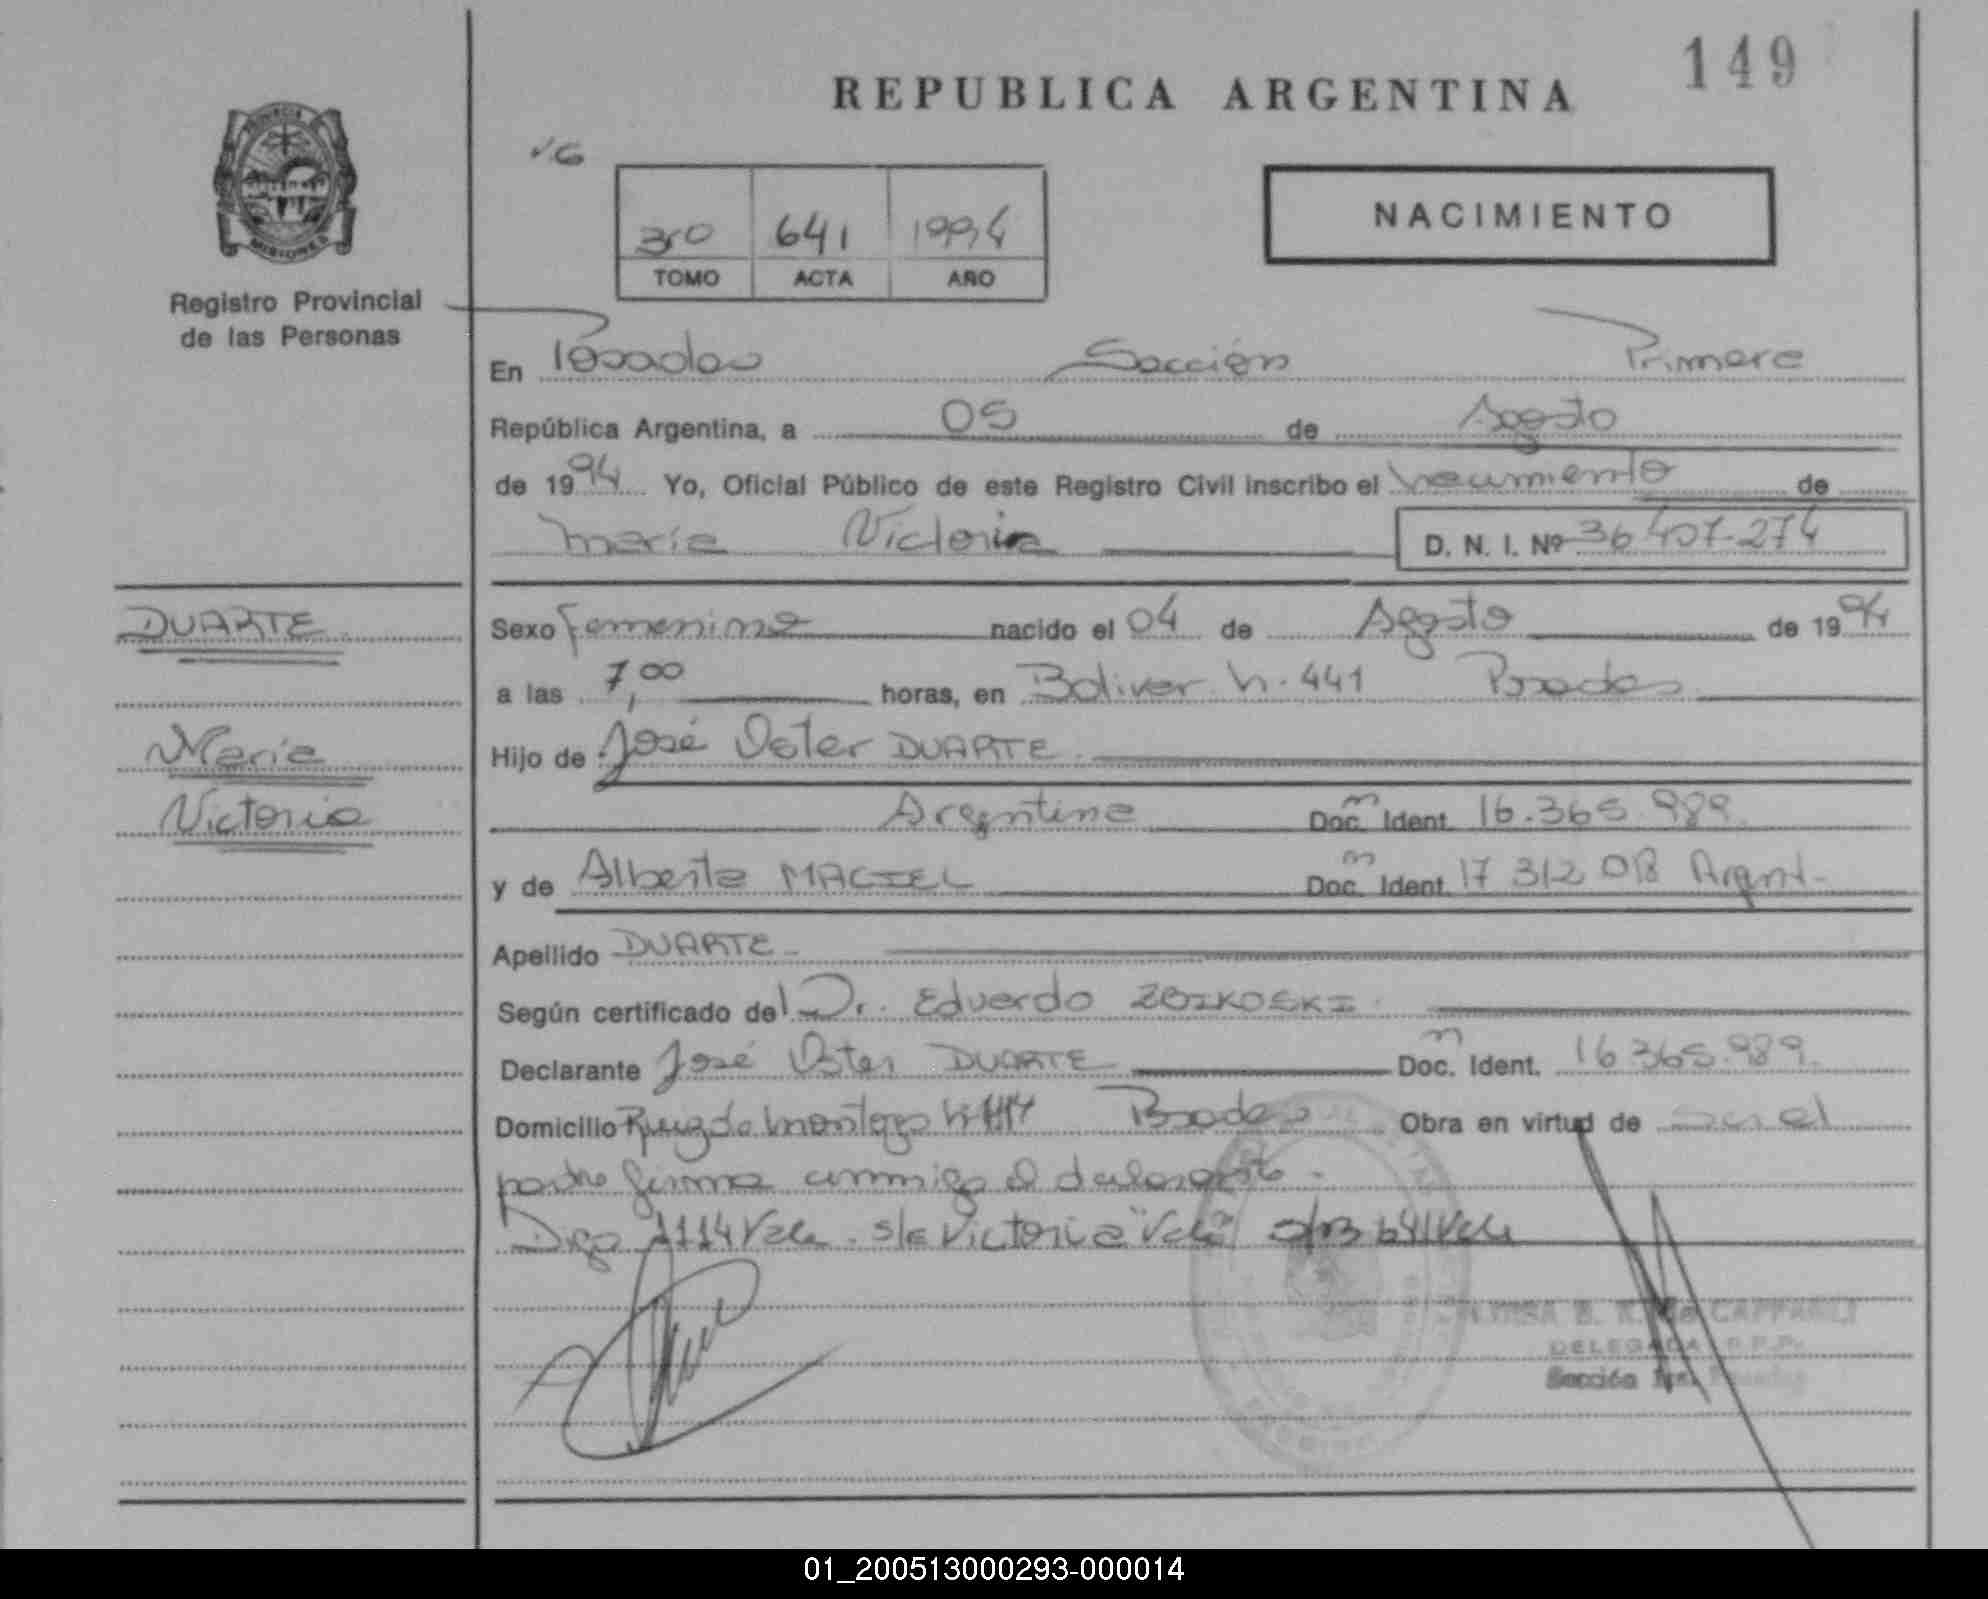 149
REPUBLICA ARGENTINA
PROVINCIA
MISIONES
NACIMIENTO
3ro 641 1994
TOMO ACTA AÑO
Registro Provincial
de las Personas
En Posadas Sección Primera
República Argentina, a 05 de Agosto
de 1994 Yo, Oficial Público de este Registro Civil inscribo el Nacimiento de
Maria Victoria D. N. I. Nº 36 407.274
DUARTE
Maria
Victoria
Sexo femenino nacido el 04 de Agosto de 1994
a las 7,00 horas, en Bolivar n. 441 Posadas
Hijo de José DUARTE
Argentina Doc. Ident. 16.365.989
y de MACIEL Doc. Ident. 17 312 018 Argent.
Apellido DUARTE
Según certificado del Dr. Eduardo
Declarante José DUARTE Doc. Ident. 16 365.989
Domicilio Ruiz de Montoya Posadas Obra en virtud de ser el
padre firma conmigo el declarante.
Digo 1114 Vale. s/e Victoria "Vale" 641 Vale
DE CAFFARELI
DELEGADA R.P.P.
Sección 1ra.
01_200513000293-000014